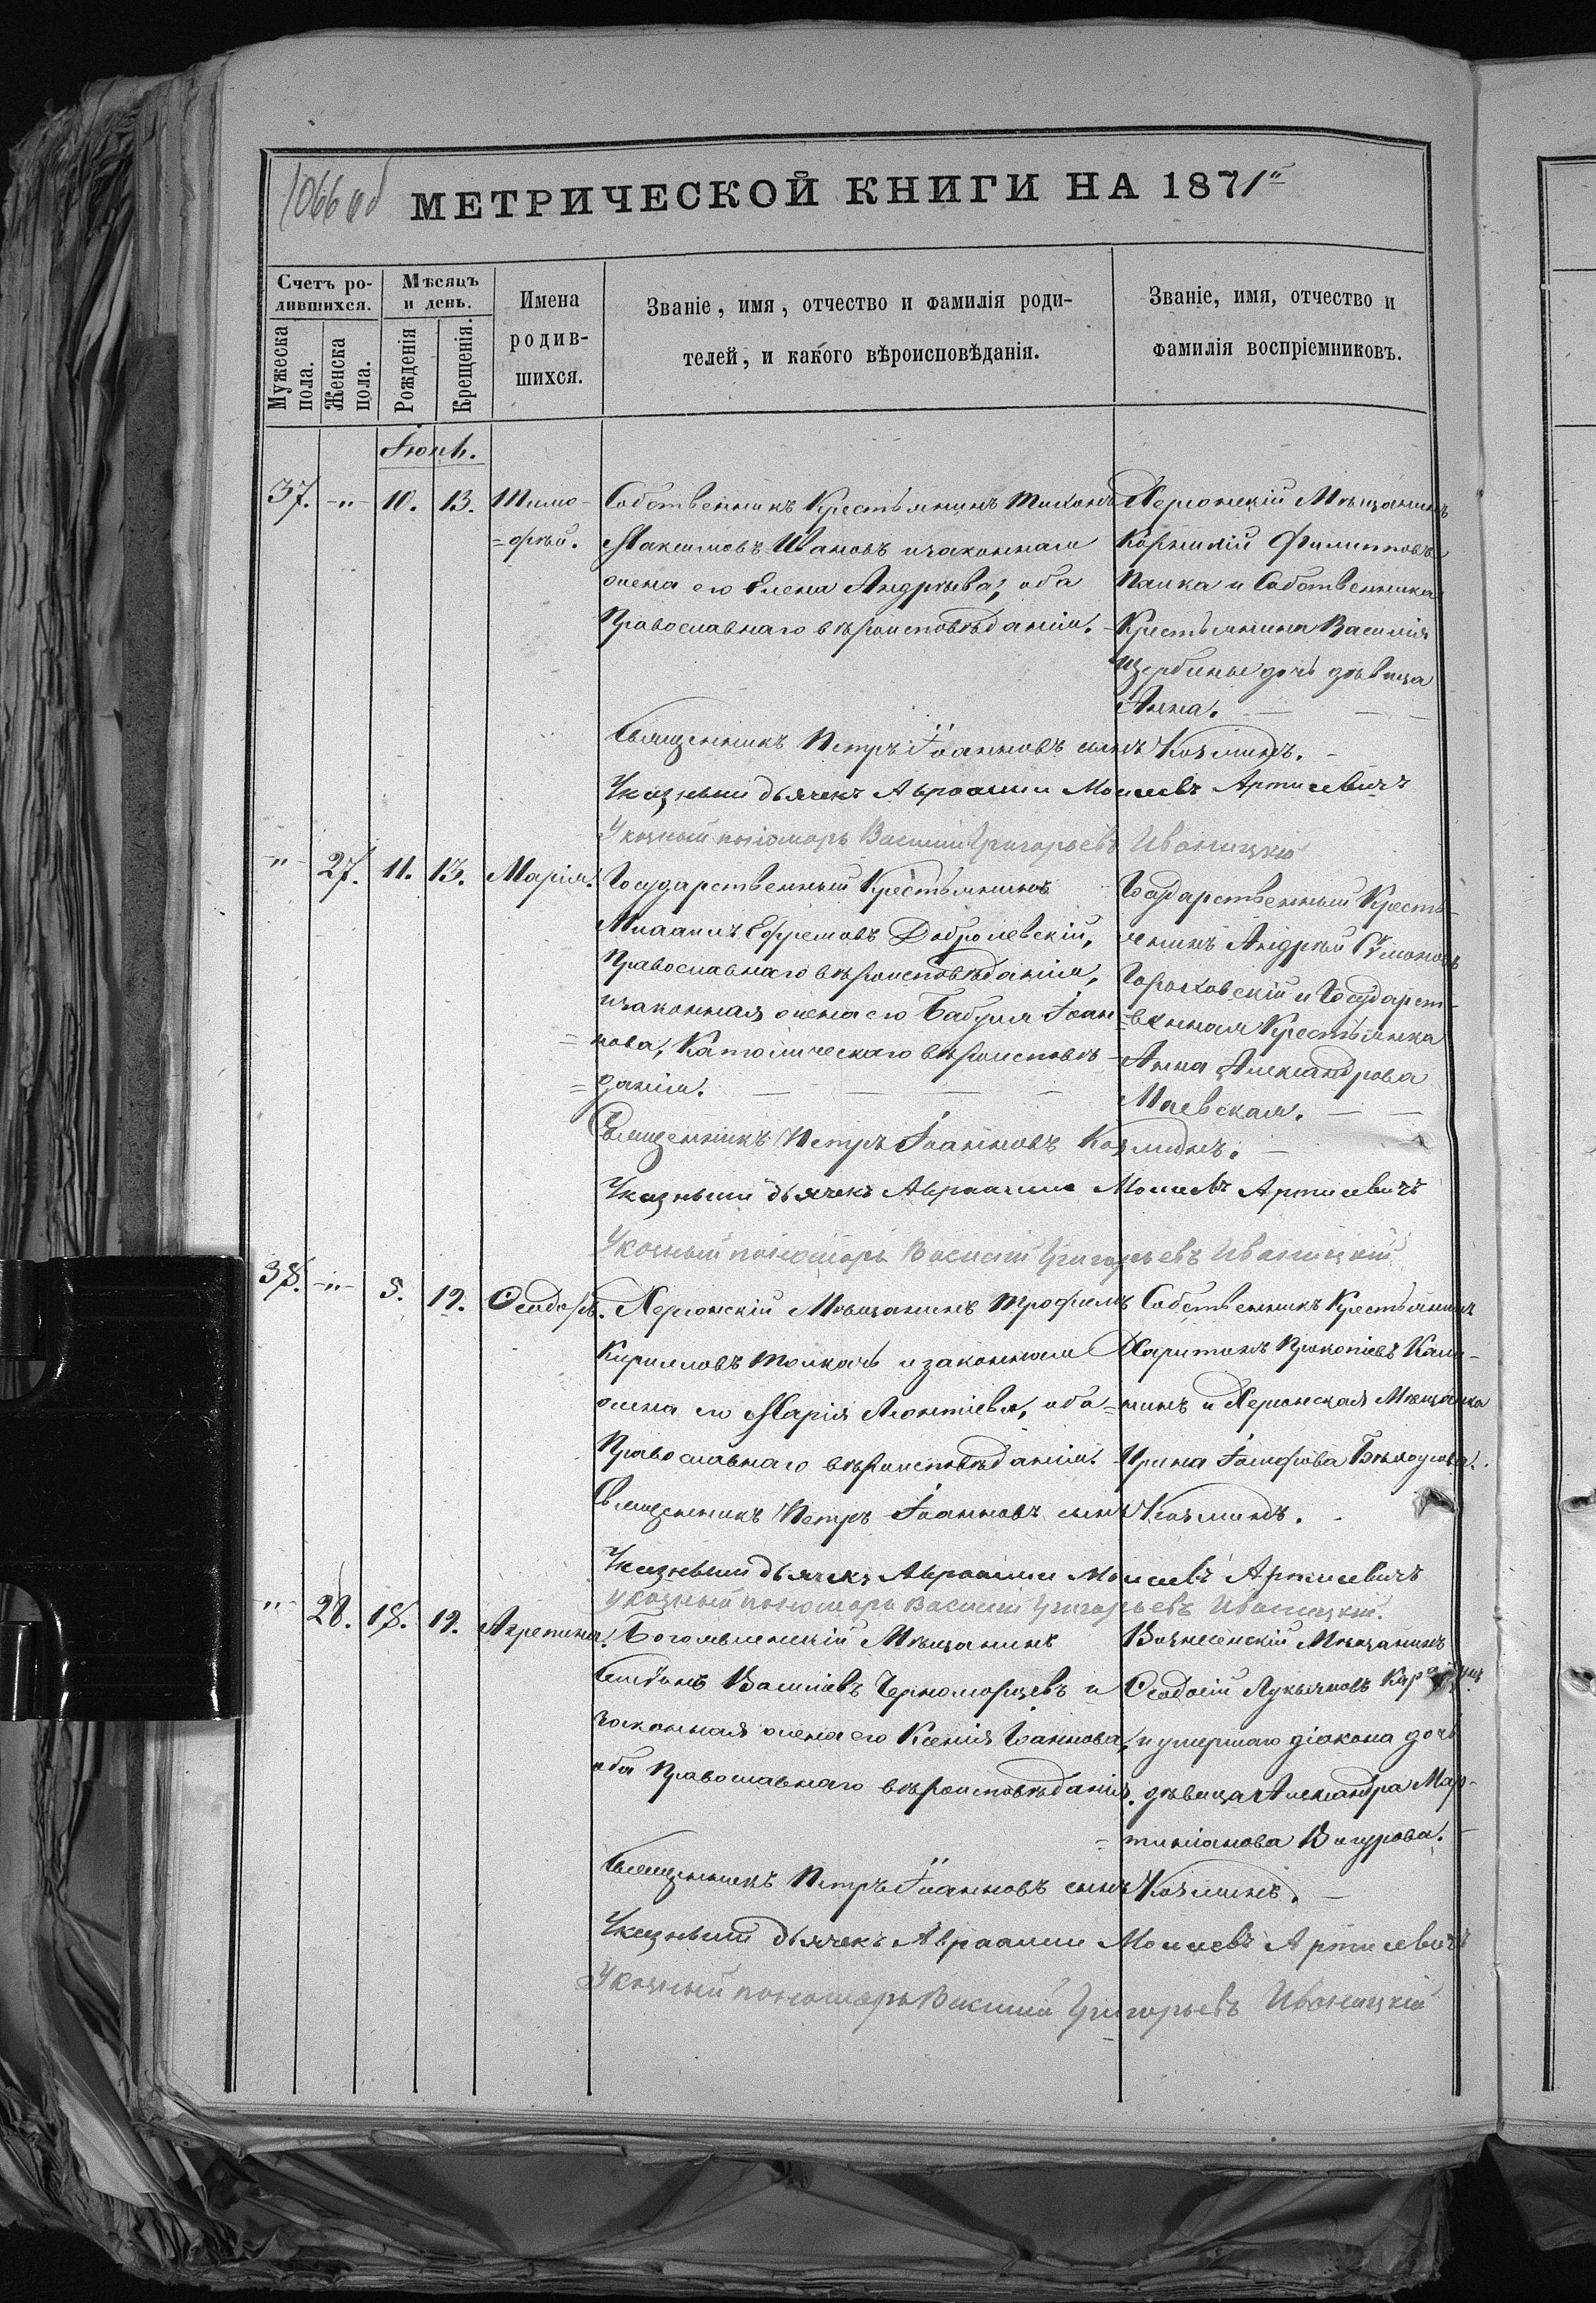 1066 об
МЕТРИЧЕСКОЙ КНИГИ НА 1871й
Счетъ ро-
дившихся.
Мужеска
пола.
Женска
пола.
Мѣсяцъ
и день.
Рожденія
Крещенія.
Имена
родив-
шихся.
Званіе, имя, отчество и фамилія роди-
телей, и какого вѣроисповѣданія.
Званіе, имя, отчество и
фамилія воспріемниковъ.
Іюнь.
37. -"- 10. 13. Тимо-
=фѣй.
Собственникъ Крестьянинъ Тихонъ
Максимовъ Ивановъ и законная
жена его Елена Андрѣева, оба
Православнаго вѣроисповѣданія.
Херсонскій Мѣщанинъ
Корнилій Филипповъ
Паика и Собственника
Крестьянина Василія
Щербины дочь дѣвица
Анна.
Священникъ Петръ Іоанновъ сынъ Козминъ.
Указный дьячекъ Авраамій Моисеевъ Артисевичъ
Указный пономарь Василій Григорьевъ Иваницкій
" 27. 11. 13. Марія.
Государственный Крестьянинъ
Михаилъ Ефремовъ Доброlевскій,
Православнаго вѣроисповѣданія,
и законная жена его Іоан-
=нова, Католическаго вѣроисповѣ-
=данія.
Государственный Кресть-
янинъ Андрей Симоновъ
Гороховскій и Государст-
=венная Крестьянка
Анна Александрова
Маевская.
Священникъ Петръ Іоанновъ Козминъ.
Указный дьячекъ Авраамій Моисеевъ Артисевичъ
Указный пономарь Василій Григорьевъ Иваницкій
38. -"- 8. 19. Ѳеодоръ.
Херсонскій Мѣщанинъ Трофимъ
Кирилловъ Толкачъ и законная
жена его Марія Леонтіева, оба
Православнаго вѣроисповѣданія.
Собственникъ Крестьянинъ
Харитонъ Прокопіевъ Кали-
=нинъ и Херсонская Мѣщанка
Ирина Іосифова Бѣлоусова.
Священникъ Петръ Іоанновъ сынъ Козминъ.
Указный дьячекъ Авраамій Моисеевъ Артисевичъ
Указный пономарь Василій Григорьевъ Иваницкій.
" 28. 18. 19. Агрепина.
Богоявленскій Мѣщанинъ
Стефанъ Василіевъ Черноморцевъ и
законная жена его Ксенія Іоаннова,
оба Православнаго вѣроисповѣданія.
Вознесенскій Мѣщанинъ
Ѳеодосій Лукьяновъ
и умершаго діакона дочь
дѣвица Александра Мар-
=тиніанова Вигурова.
Священникъ Петръ Іоанновъ сынъ Козминъ.
Указный дьячекъ Авраамій Моисеевъ Артисевичъ
Указный пономарь Василій Григорьевъ Иваницкій